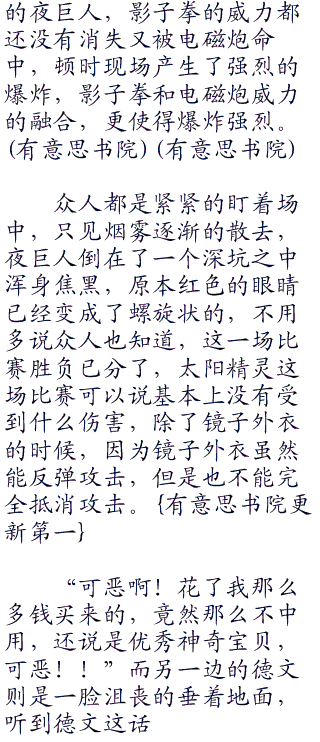 的夜巨人，影子拳的威力都
还没有消失又被电磁炮命
中，顿时现场产生了强烈的
爆炸，影子拳和电磁炮威力
的融合，更使得爆炸强烈。
(有意思书院)(有意思书院)
众人都是紧紧的盯着场
中，只见烟雾逐渐的散去，
夜巨人倒在了一个深坑之中
浑身焦黑，原本红色的眼睛
已经变成了螺旋状的，不用
多说众人也知道，这一场比
赛胜负已分了，太阳精灵这
场比赛可以说基本上没有受
到什么伤害，除了镜子外衣
的时候，因为镜子外衣虽然
能反弹攻击，但是也不能完
全抵消攻击。{有意思书院更
新第一}
“可恶啊！花了我那么
多钱买来的，竟然那么不中
用，还说是优秀神奇宝贝，
可恶！！”而另一边的德文
则是一脸沮丧的垂着地面，
听到德文这话